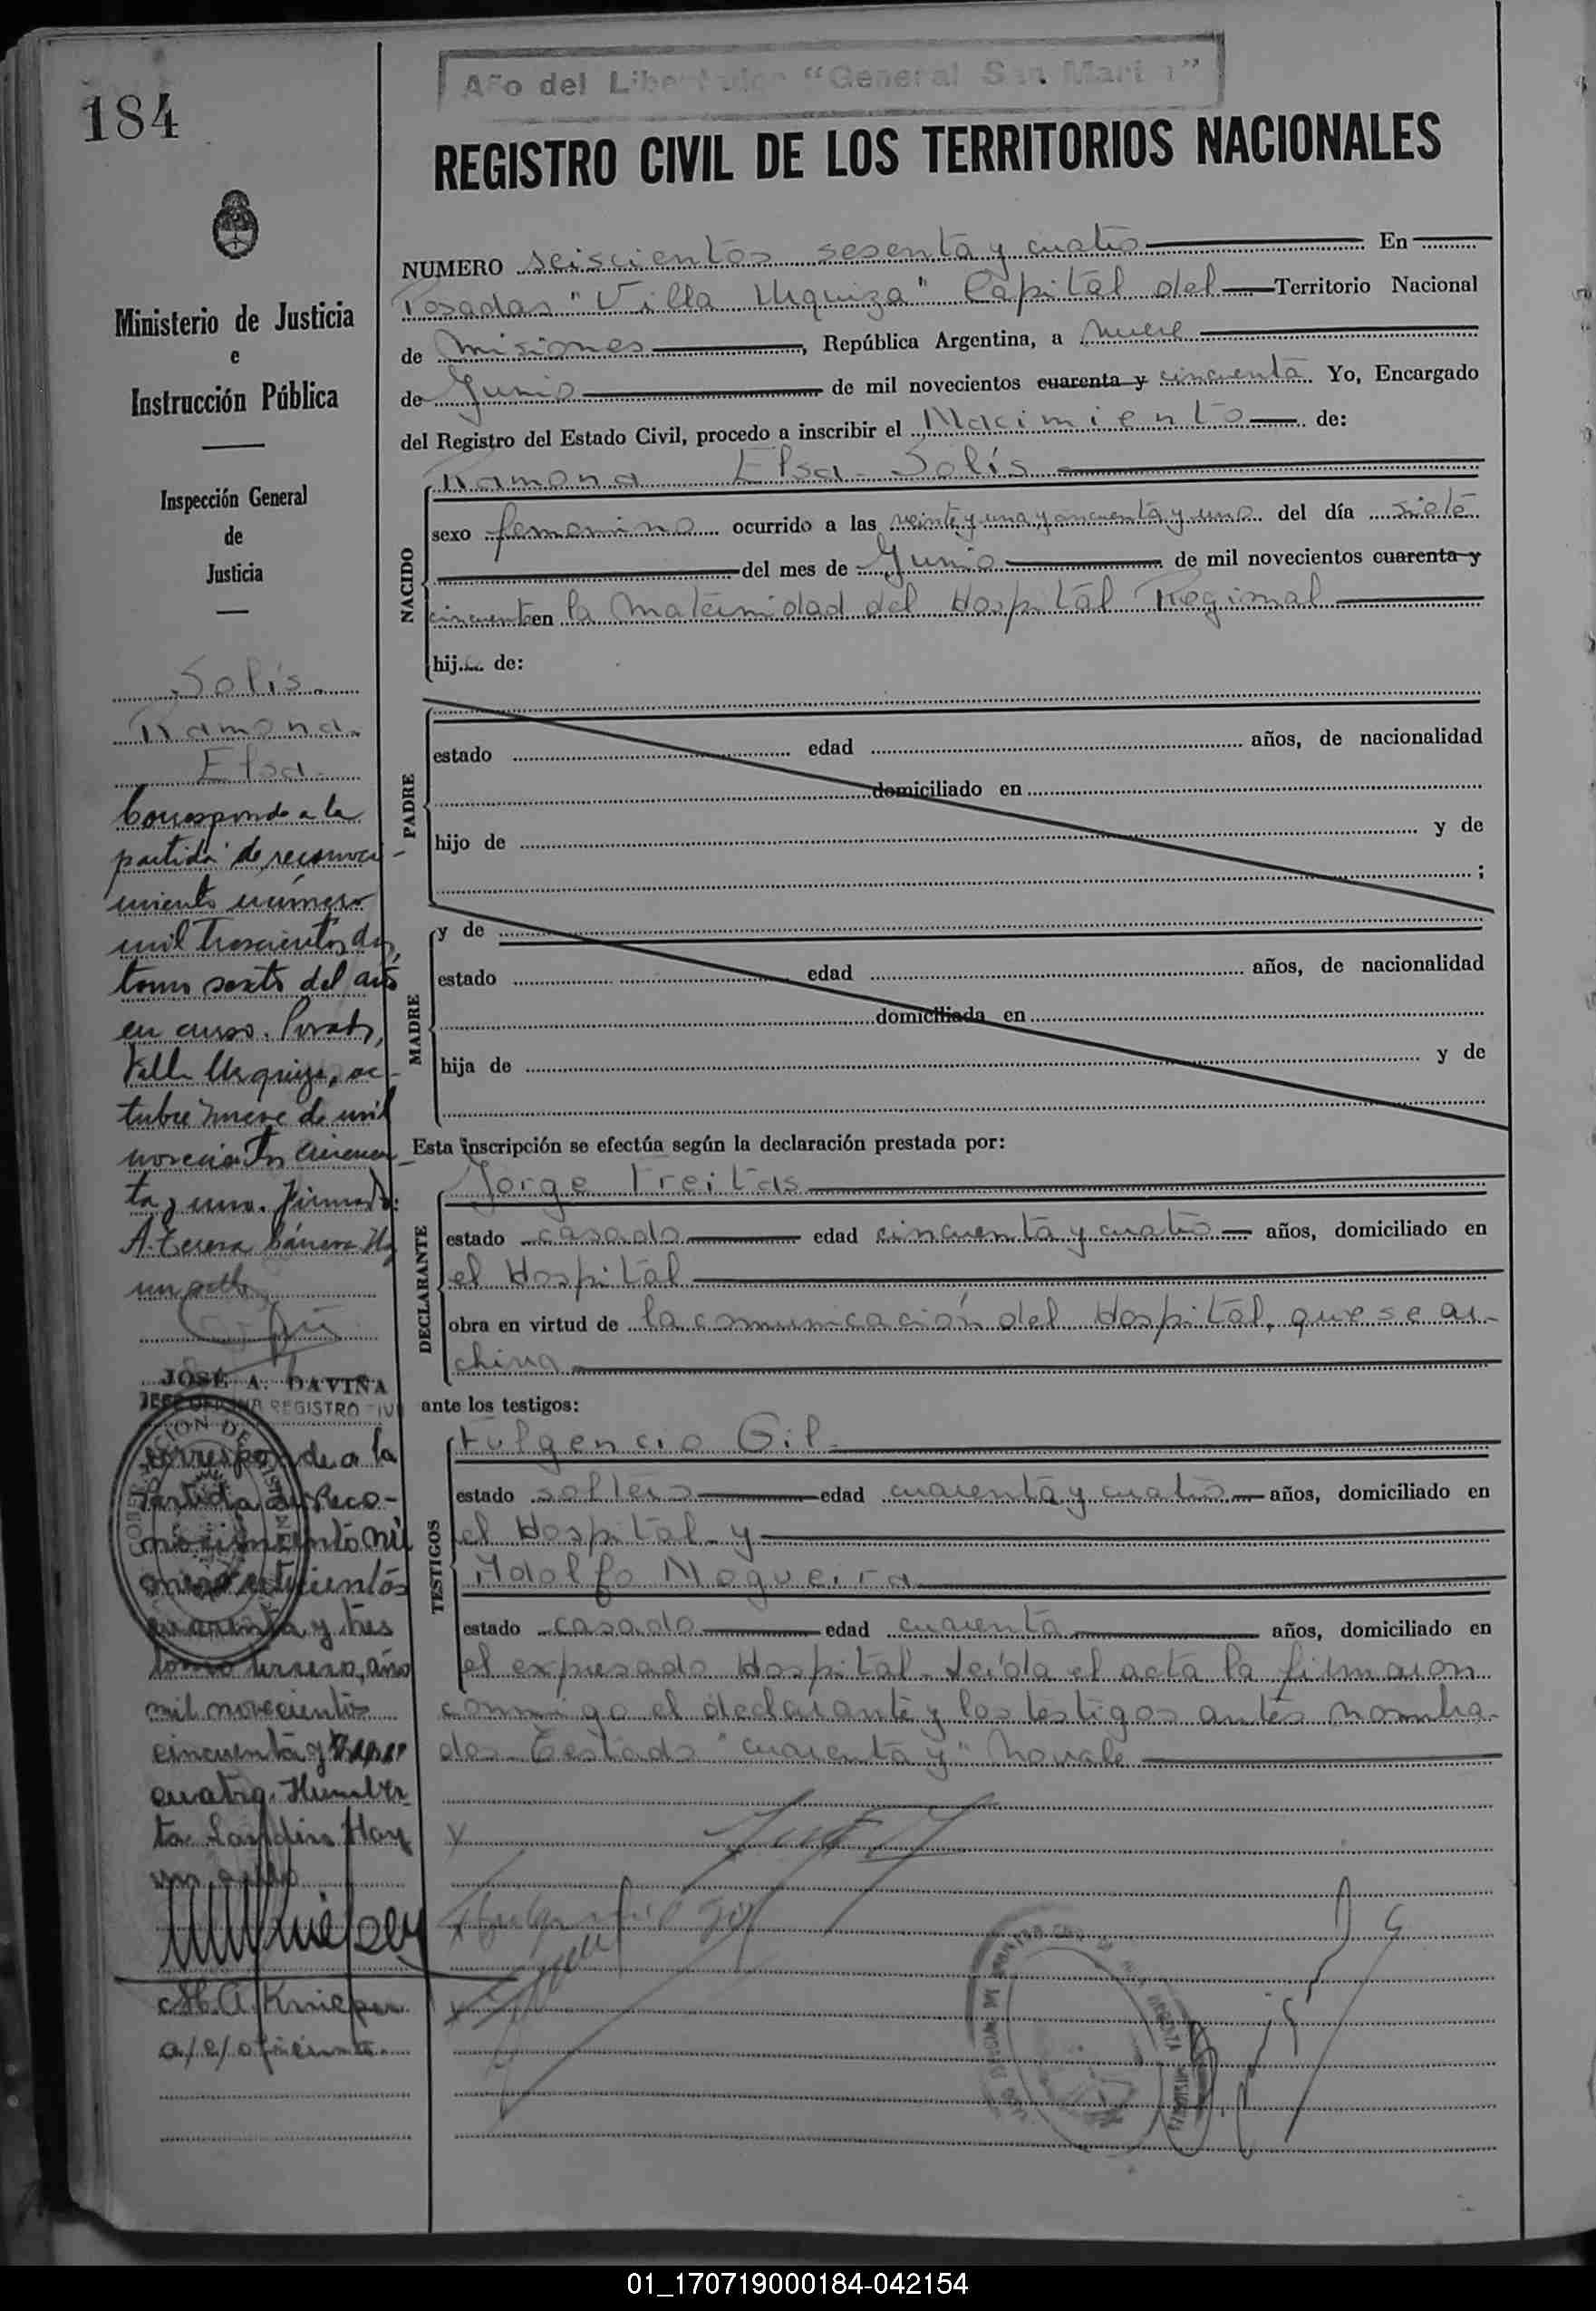 Año del Libertador "General San Martín"
184
REGISTRO CIVIL DE LOS TERRITORIOS NACIONALES
Ministerio de Justicia
e
Instrucción Pública
Inspección General
de
Justicia
NUMERO seiscientos sesenta y cuatro En
Posadas "Villa Urquiza" Capital del Territorio Nacional
de Misiones, República Argentina, a nueve
de Junio de mil novecientos cuarenta y cincuenta Yo, Encargado
del Registro del Estado Civil, procedo a inscribir el Nacimiento de:
NACIDO
Ramona Elsa Solís
sexo femenino ocurrido a las veinte y una y cincuenta y uno del día siete
del mes de Junio de mil novecientos cuarenta y
cincuenta en la Maternidad del Hospital Regional
hija de:
PADRE
estado edad años, de nacionalidad
domiciliado en
hijo de y de
;
MADRE
y de
estado edad años, de nacionalidad
domiciliada en
hija de y de
Esta inscripción se efectúa según la declaración prestada por:
DECLARANTE
Jorge Freitas
estado casado edad cincuenta y cuatro años, domiciliado en
el Hospital
obra en virtud de la comunicación del Hospital, que se ar-
chiva
ante los testigos:
TESTIGOS
Fulgencio Gil
estado soltero edad cuarenta y cuatro años, domiciliado en
el Hospital y
Adolfo Nogueira
estado casado edad cuarenta años, domiciliado en
el expresado Hospital. Leída el acta la firmaron
conmigo el declarante y los testigos antes nombra-
dos. Testado "cuarenta y" No vale
Solís
Ramona
Elsa
Corresponde a la
partida de reconoci-
miento número
mil trescientos dos
tomo sexto del año
en curso. Posadas,
Villa Urquiza, oc-
tubre nueve de mil
novecientos cincuen-
ta y uno. Firmado:
A. Teresa Hay
un sello
JOSÉ A. DAVIÑA
JEFE OFICINA REGISTRO CIVIL
corresponde a la
Partida de Reco-
nocimiento nú
mero cuatrocientos
cuarenta y tres
tomo tercero, año
mil novecientos
cincuenta y
cuatro. Humber
to Hay
un sello
M. A. Knieper
a/c/ oficina
01_170719000184-042154